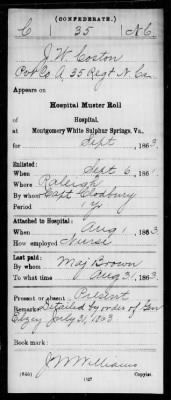 (CONFEDERATE.)
C 35 N.C.
J. W. Coston
Pvt Co A, 35 Regt N. Car.
Appears on
Hospital Muster Roll
of Hospital,
at Montgomery White Sulphur Springs, Va.,
for Sept, 1863.
Enlisted:
When Sept 6, 1861.
Where Raleigh
By whom Capt
Period 1 yr
Attached to Hospital:
When Aug 1, 1863
How employed Nurse
Last paid:
By whom Maj Brown
To what time Aug 31, 1863.
Present or absent Present
Remarks: Detailed by order of Gen
Elzey July 21, 1863
Book mark:
J W Williams
Copyist.